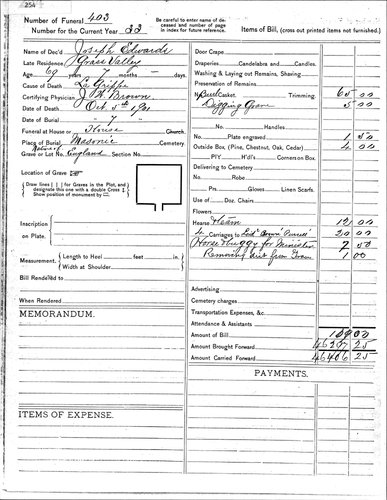 254
Number of Funeral 403
Number for the Current Year 33
Be careful to enter name of deceased and number of page in index for future reference.
Items of Bill, (cross out printed items not furnished.)
Name of Dec'd Joseph Edwards
Late Residence Grass Valley
Age 60 years 7 months – days
Cause of Death La Grippe
Certifying Physician J. H. Brown
Date of Death Oct 5th 1901
Date of Burial " 7 "
Funeral at House or House Church.
Place of Burial Masonic Cemetery
Native of
Grave or Lot No. England Section No.
Location of Grave
Draw lines [ ] for Graves in the Plot, and
designate this one with a double Cross
Show position of monument by
Inscription
on Plate.
Measurement.
Length to Heel feet in.
Width at Shoulder
Bill Rendered to
When Rendered
MEMORANDUM.
ITEMS OF EXPENSE.
Door Crape
Draperies Candelabras and Candles.
Washing & Laying out Remains, Shaving
Preservation of Remains
No. Burl Casket. Trimming. 65 00
Digging Grave 5 00
No. Handles
No. Plate engraved 1 50
Outside Box, (Pine, Chestnut, Oak, Cedar) 4 00
PIY. H'd'l's Corners on Box.
Delivering to Cemetery
No. Robe
Prs. Gloves Linen Scarfs.
Use of Doz. Chairs
Flowers
Hearse Team 12 00
4 Carriages to 20 00
Horse & Buggy for Minister 2 50
Removing dirt from Grave 1 00
Advertising
Cemetery charges
Transportation Expenses, &c.
Attendance & Assistants
Amount of Bill 109 00
Amount Brought Forward 46297 25
Amount Carried Forward 46406 25
PAYMENTS.